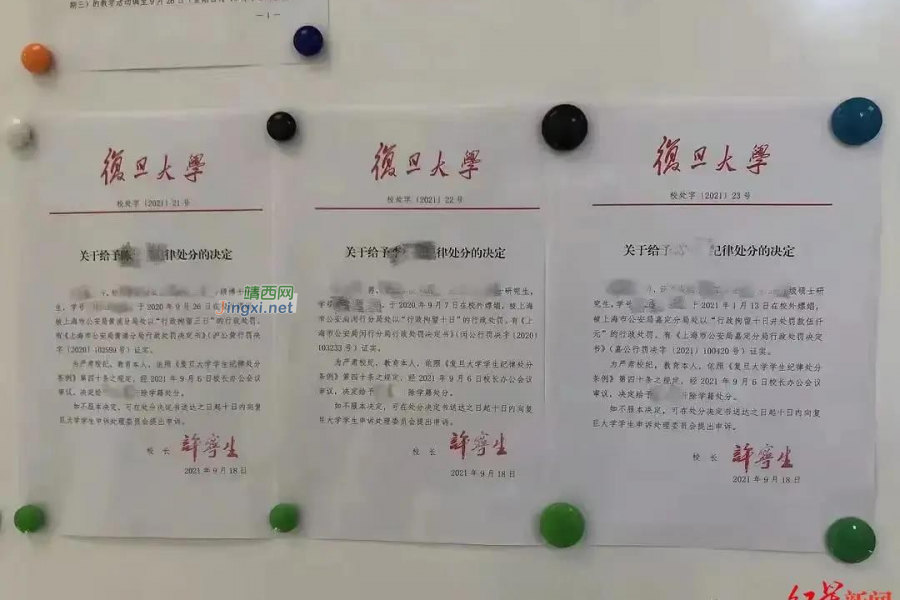 —1—
復旦大學
校处字〔2021〕21号
关于给予 律处分的决定
生,学号 于2020年9月26日在
被上海市公安局黄浦分局处以“行政拘留三日”的行政处罚,
有《上海市公安局黄浦分局行政处罚决定书》(沪公黄行罚决
字〔2020〕102599号)证实。
为严肃校纪、教育本人,依照《复旦大学学生纪律处分
条例》第四十条之规定,经2021年9月6日校长办公会议
审议,决定给予 除学籍处分。
如不服本决定,可在处分决定书送达之日起十日内向复
旦大学学生申诉处理委员会提出申诉。
校 长 許寧生
2021年9月18日
復旦大學
校处字〔2021〕22号
关于给予 律处分的决定
研究生,
学号 于2020年9月7日在校外嫖娼,被上海
市公安局闵行分局处以“行政拘留十日”的行政处罚,有《上
海市公安局闵行分局行政处罚决定书》(闵公行罚决字〔2020〕
103233号)证实。
为严肃校纪、教育本人,依照《复旦大学学生纪律处分
条例》第四十条之规定,经2021年9月6日校长办公会议
审议,决定给予 除学籍处分。
如不服本决定,可在处分决定书送达之日起十日内向复
旦大学学生申诉处理委员会提出申诉。
校 长 許寧生
2021年9月18日
復旦大學
校处字〔2021〕23号
关于给予 纪律处分的决定
级硕士研
究生,学号 于2021年1月13日在校外嫖娼,
被上海市公安局嘉定分局处以“行政拘留十日并处罚款伍仟
元”的行政处罚,有《上海市公安局嘉定分局行政处罚决定
书》(嘉公行罚决字〔2021〕100420号)证实。
为严肃校纪、教育本人,依照《复旦大学学生纪律处分
条例》第四十条之规定,经2021年9月6日校长办公会议
审议,决定给予 除学籍处分。
如不服本决定,可在处分决定书送达之日起十日内向复
旦大学学生申诉处理委员会提出申诉。
校 长 許寧生
2021年9月18日
靖西网
jingxi.net
红星新闻